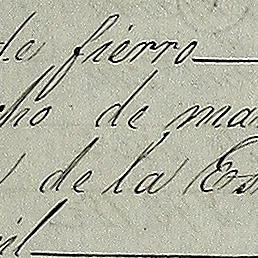 de fierro
cho de ma
de la Es
il